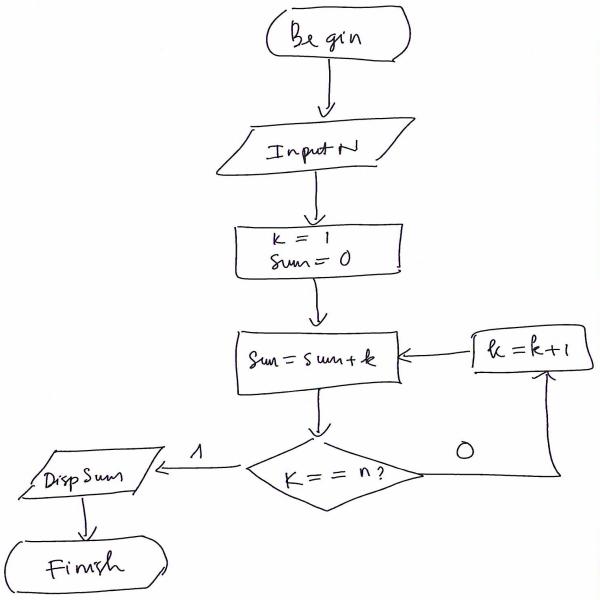 Begin
Input N
k = 1
Sum = 0
Sum = sum + k
k = k+1
K == n?
0
1
Disp Sum
Finish